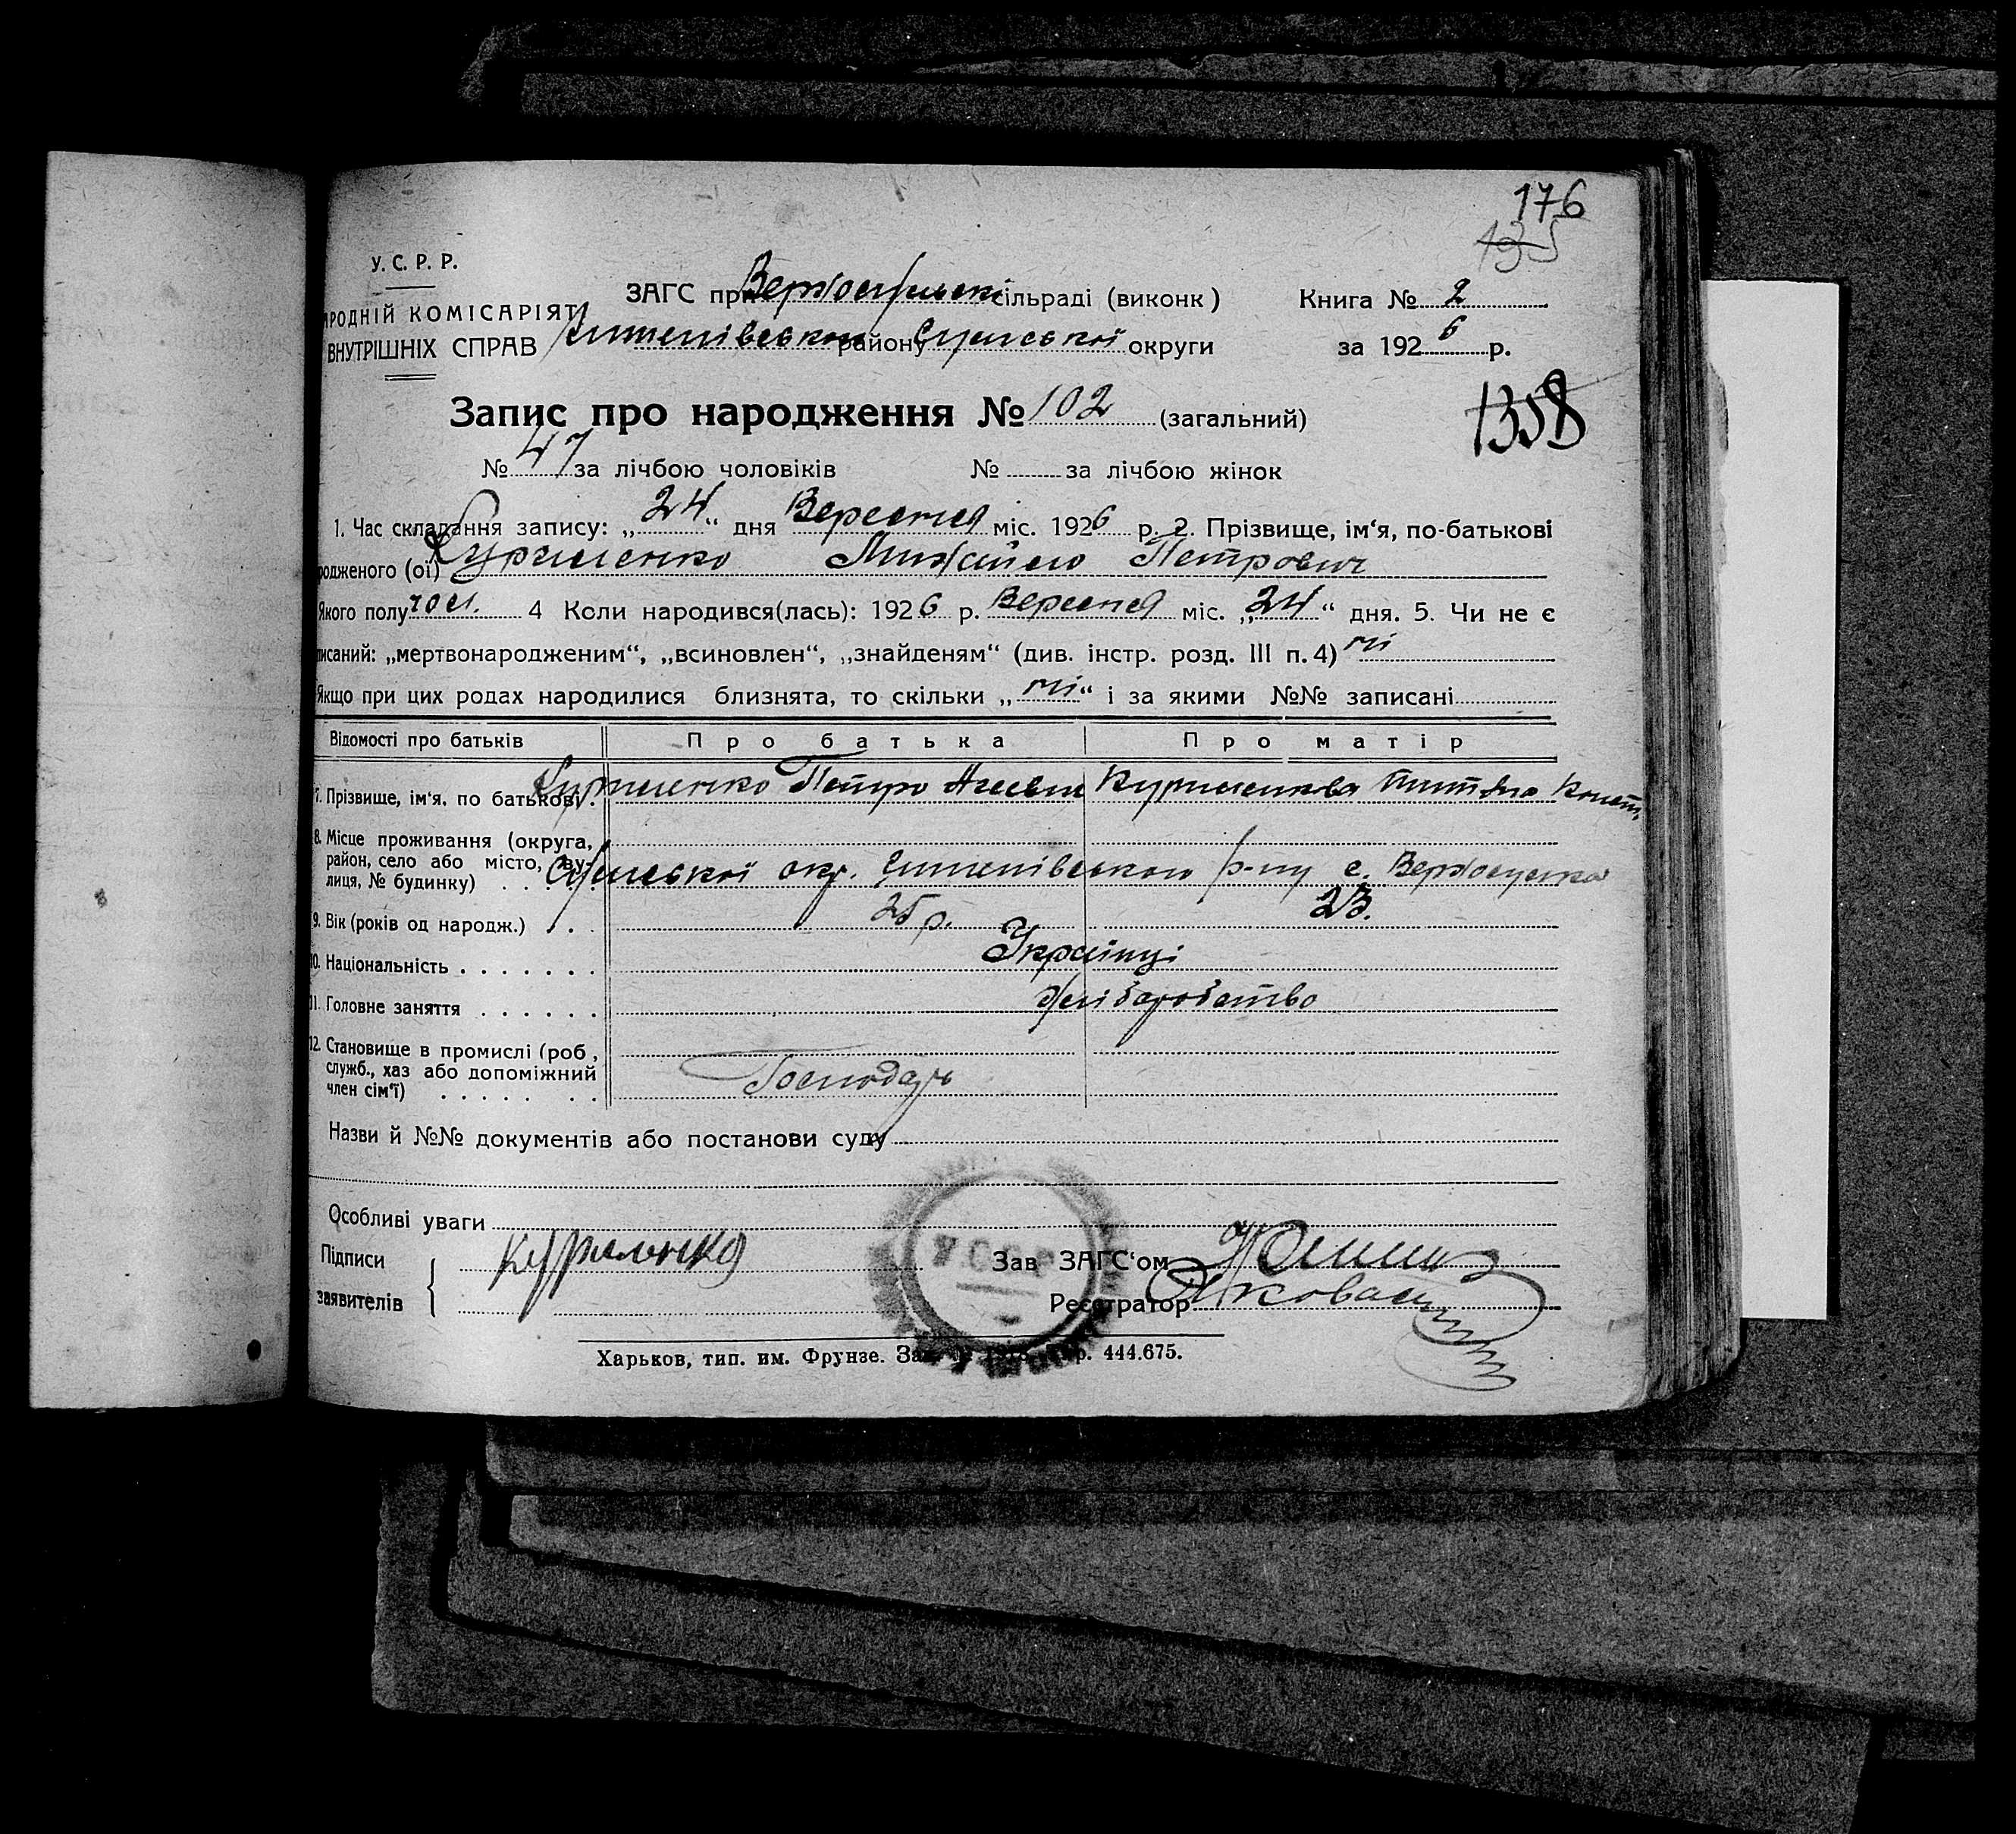 176
195
У. С. Р. Р.
ЗАГС при Верхосульскі сільраді (виконк)
Книга № 2
РОДНІЙ КОМІСАРІЯТ
ВНУТРІШНІХ СПРАВ
району Сумської округи
за 1926 р.
Запис про народження № 102 (загальний)
1358
№ 47 за лічбою чоловіків № за лічбою жінок
1. Час складання запису: „24“ дня Вересня міс. 1926 р. 2. Прізвище, ім‘я, по-батькові
родженого (ої) Куриленко Михайло Петрович
Якого полу чол. 4 Коли народився(лась): 1926 р. Вересня міс. „24“ дня. 5. Чи не є
писаний: „мертвонародженим“, „всиновлен“, „знайденям“ (див. інстр. розд. III п. 4) ні
Якщо при цих родах народилися близнята, то скільки „ні“ і за якими №№ записані
Відомості про батьків Про батька Про матір
7. Прізвище, ім‘я, по батькові. Куриленко Петро Куриленкова Конст.
8. Місце проживання (округа, район, село або місто, вулиця, № будинку) . .
Сумської окр. р-ну с. Верхосулка
9. Вік (років од народж.) . . . 25 р. 23.
10. Національність . . . . . . . Українці
11. Головне заняття . . . . . . Хліборобство
12. Становище в промислі (роб,
служб., хаз або допоміжний
член сім‘ї) . . . . . . . Господарь
Назви й №№ документів або постанови суду
Особливі уваги
Підписи
заявителів
Куриленко
Зав ЗАГС‘ом
Реєстратор
Харьков, тип. им. Фрунзе. 444.675.